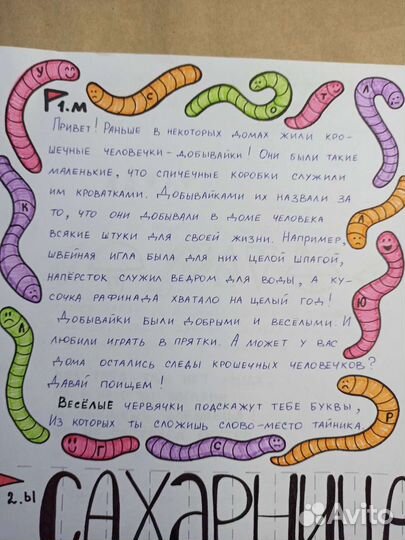 У
С
О
Т
Л
1.М
Привет! Раньше в некоторых домах жили кро-
шечные человечки - добывайки! Они были такие
маленькие, что спичечные коробки служили
им кроватками. Добывайками их назвали за
то, что они добывали в доме человека
всякие штуки для своей жизни. Например,
швейная игла была для них целой шпагой,
напёрсток служил ведром для воды, а ку-
сочка рафинада хватало на целый год!
Добывайки были добрыми и весёлыми. И
любили играть в прятки. А может у вас
дома остались следы крошечных человечков?
Давай поищем!
Весёлые червячки подскажут тебе буквы,
Из которых ты сложишь слово-место тайника.
К
Л
Л
Ю
Р
Г
С
2.Ы
САХАРНИЦА
Avito